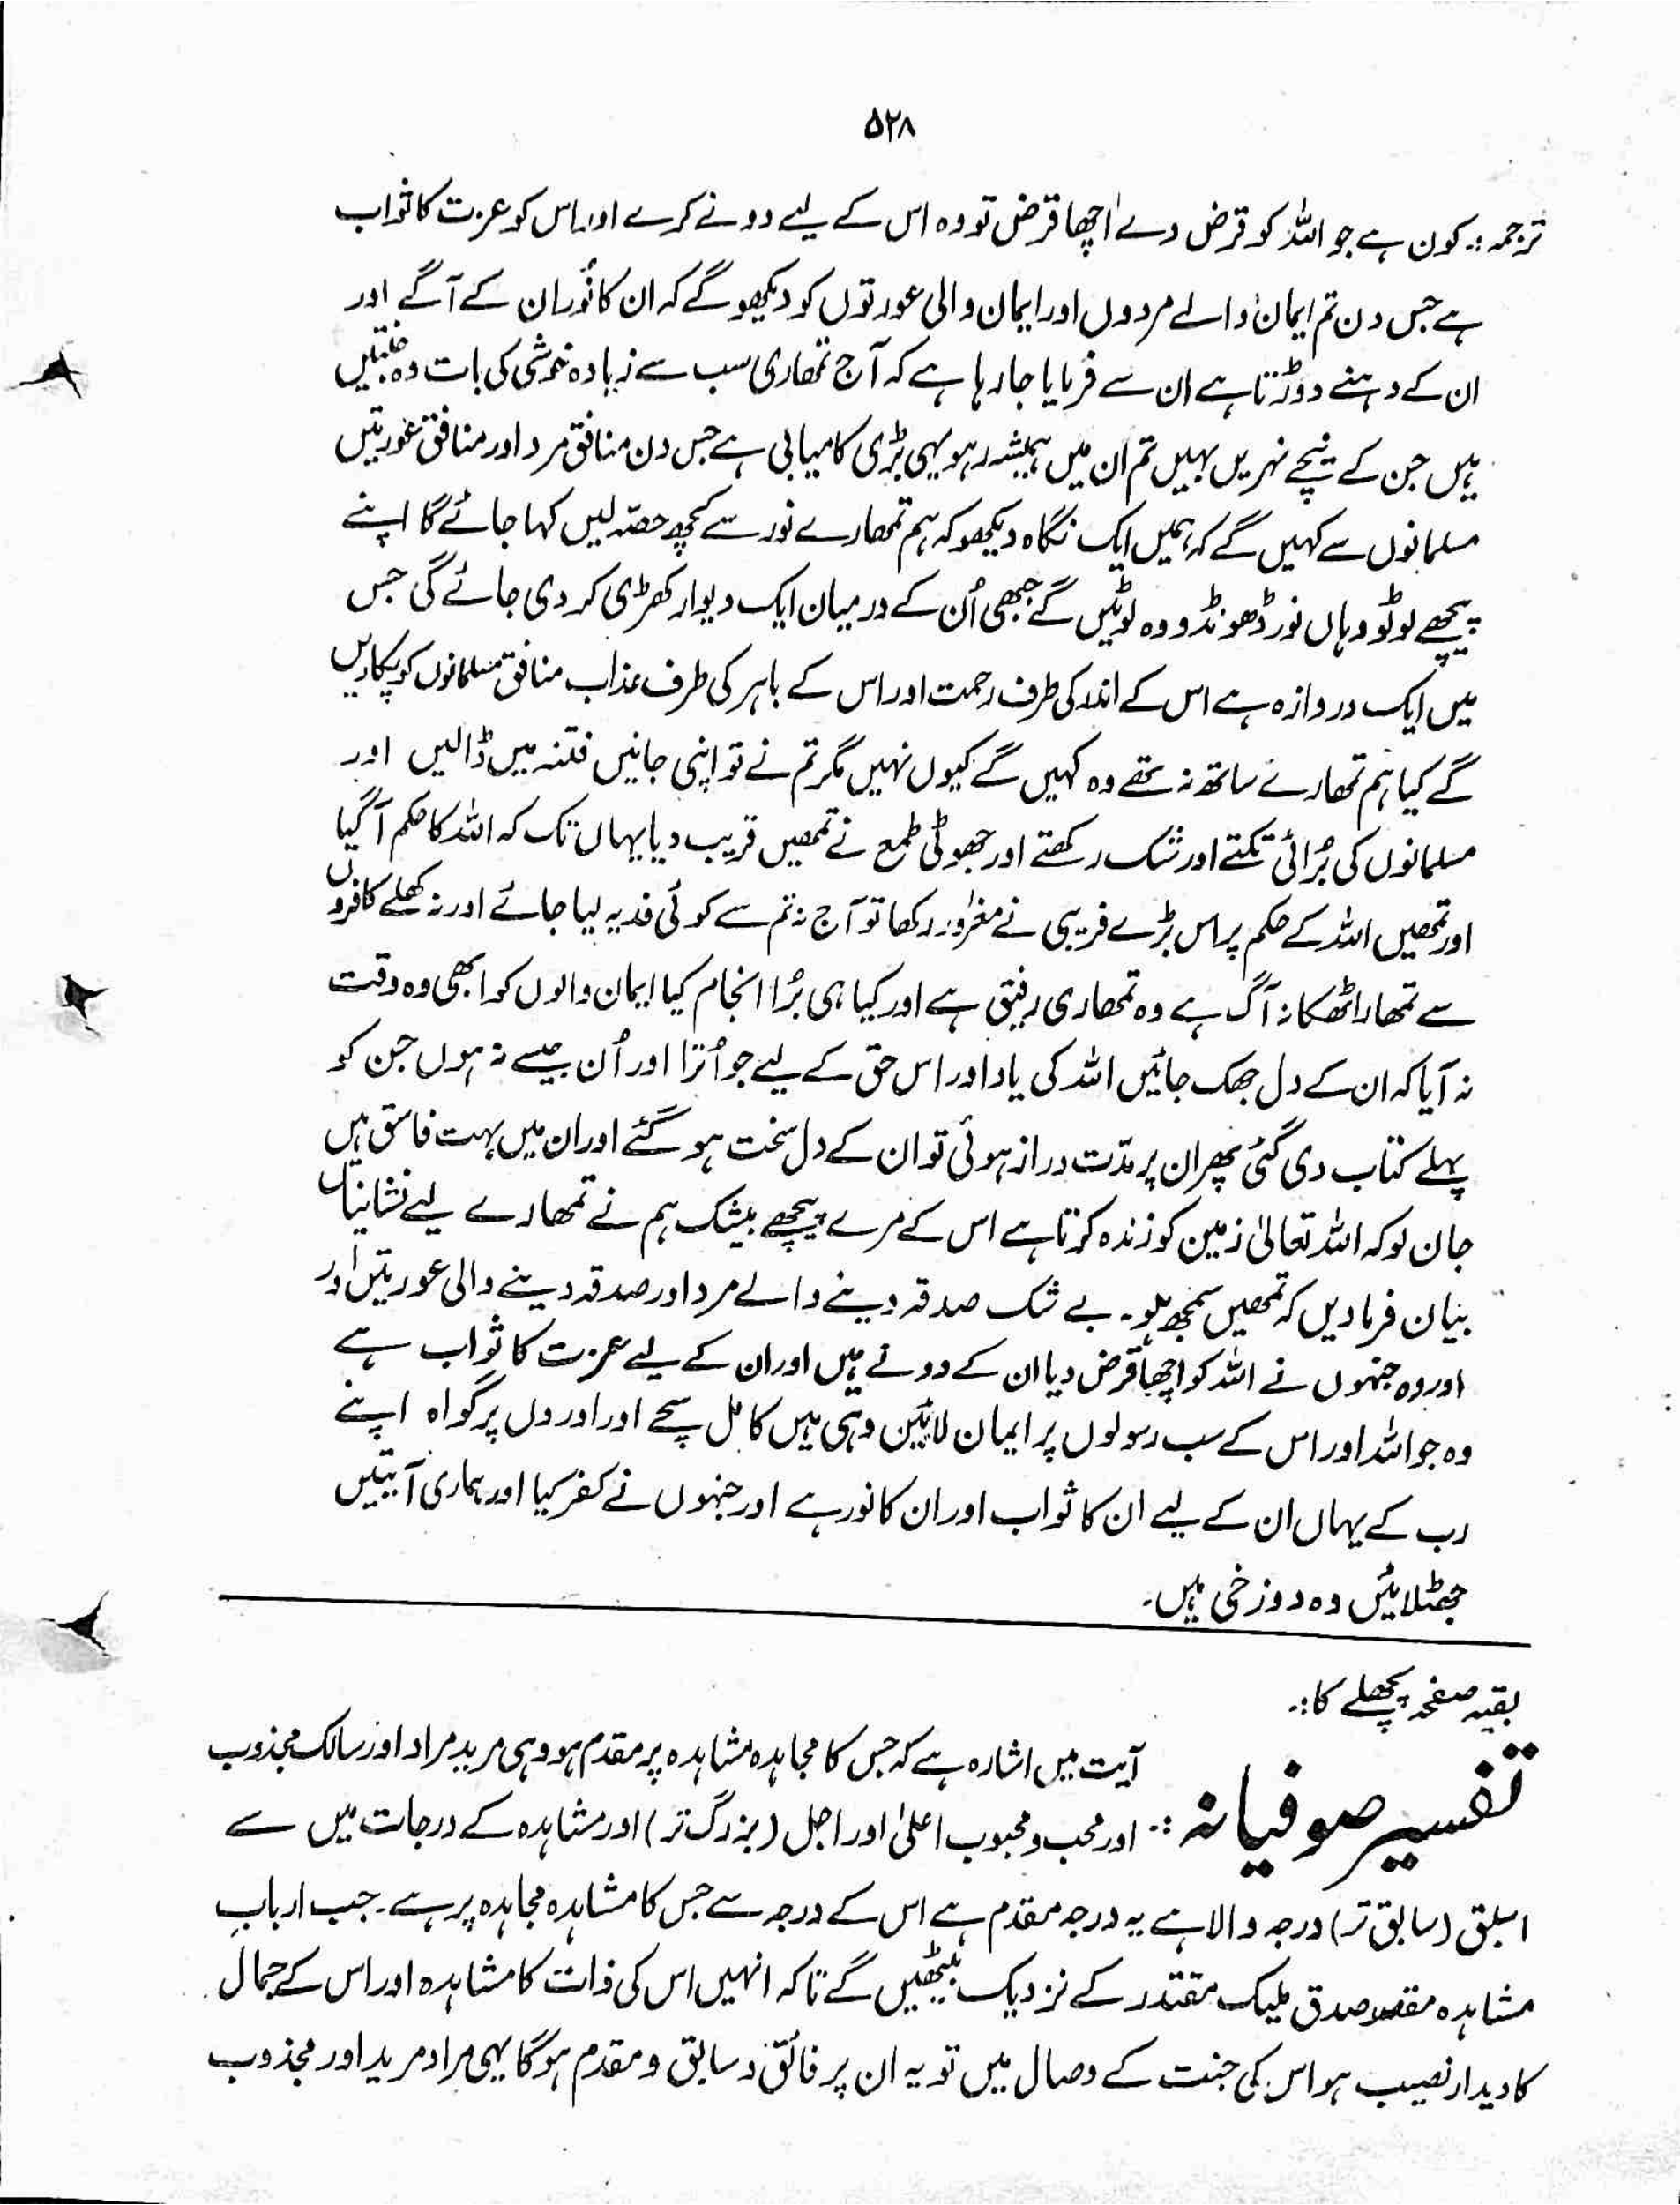 ۵۲۸
ترجمہ :۔ کون ہے جو اللہ کو قرض دے اچھا قرض تو وہ اس کے لیے دونے کرے اور اس کو عزت کا ثواب
ہے جس دن تم ایمان والے مردوں اور ایمان والی عورتوں کو دیکھو گے کہ ان کا نُور ان کے آگے اور
ان کے دہنے دوڑتا ہے ان سے فرمایا جارہا ہے کہ آج تمھاری سب سے زیادہ خوشی کی بات وہ جنتیں
ہیں جن کے نیچے نہریں بہیں تم ان میں ہمیشہ رہو یہی بڑی کامیابی ہے جس دن منافق مرد اور منافق عورتیں
مسلمانوں سے کہیں گے کہ ہمیں ایک نگاہ دیکھو کہ ہم تمھارے نور سے کچھ حصّہ لیں کہا جائے گا اپنے
پیچھے لوٹو وہاں نور ڈھونڈو وہ لوٹیں گے جبھی اُن کے درمیان ایک دیوار کھڑی کر دی جائے گی جس
میں ایک دروازہ ہے اس کے اندر کی طرف رحمت اور اس کے باہر کی طرف عذاب منافق مسلمانوں کو پکاریں
گے کیا ہم تمھارے ساتھ نہ تھے وہ کہیں گے کیوں نہیں مگر تم نے تو اپنی جانیں فتنہ میں ڈالیں اور
مسلمانوں کی بُرائی تکتے اور شک رکھتے اور جھوٹی طمع نے تمھیں فریب دیا یہاں تک کہ اللہ کا حکم آگیا
اور تمھیں اللہ کے حکم پر اس بڑے فریبی نے مغرور رکھا تو آج نہ تم سے کوئی فدیہ لیا جائے اور نہ کھلے کافروں
سے تمھارا ٹھکانہ آگ ہے وہ تمھاری رفیق ہے اور کیا ہی بُرا انجام کیا ایمان والوں کو ابھی وہ وقت
نہ آیا کہ ان کے دل جھک جائیں اللہ کی یاد اور اس حق کے لیے جو اُترا اور اُن جیسے نہ ہوں جن کو
پہلے کتاب دی گئی پھر ان پر مدّت دراز ہوئی تو ان کے دل سخت ہو گئے اور ان میں بہت فاسق ہیں
جان لو کہ اللہ تعالیٰ زمین کو زندہ کرتا ہے اس کے مرے پیچھے بیشک ہم نے تمھارے لیے نشانیاں
بیان فرمادیں کہ تمھیں سمجھ ہو۔ بے شک صدقہ دینے والے مرد اور صدقہ دینے والی عورتیں اور
اور وہ جنہوں نے اللہ کو اچھا قرض دیا ان کے دونے ہیں اور ان کے لیے عزت کا ثواب ہے
وہ جو اللہ اور اس کے سب رسولوں پر ایمان لائیں وہی ہیں کامل سچے اور اوروں پر گواہ اپنے
رب کے یہاں ان کے لیے ان کا ثواب اور ان کا نور ہے اور جنہوں نے کفر کیا اور ہماری آیتیں
جھٹلائیں وہ دوزخی ہیں۔
بقیہ صفحہ پچھلے کا :۔
تفسیر صوفیانہ :۔ آیت میں اشارہ ہے کہ جس کا مجاہدہ مشاہدہ پر مقدم ہو وہی مرید مراد اور سالک مجذوب
اور محب و محبوب اعلیٰ اور اجل (بزرگ تر) اور مشاہدہ کے درجات میں سے
اسبق (سابق تر) درجہ والا ہے یہ درجہ مقدم ہے اس کے درجہ سے جس کا مشاہدہ مجاہدہ پر ہے۔ جب ارباب
مشاہدہ مقعد صدق ملیک مقتدر کے نزدیک بیٹھیں گے تاکہ انہیں اس کی ذات کا مشاہدہ اور اس کے جمال
کا دیدار نصیب ہو اس کی جنت کے وصال میں تو یہ ان پر فائق و سابق و مقدم ہوگا یہی مراد مرید اور مجذوب